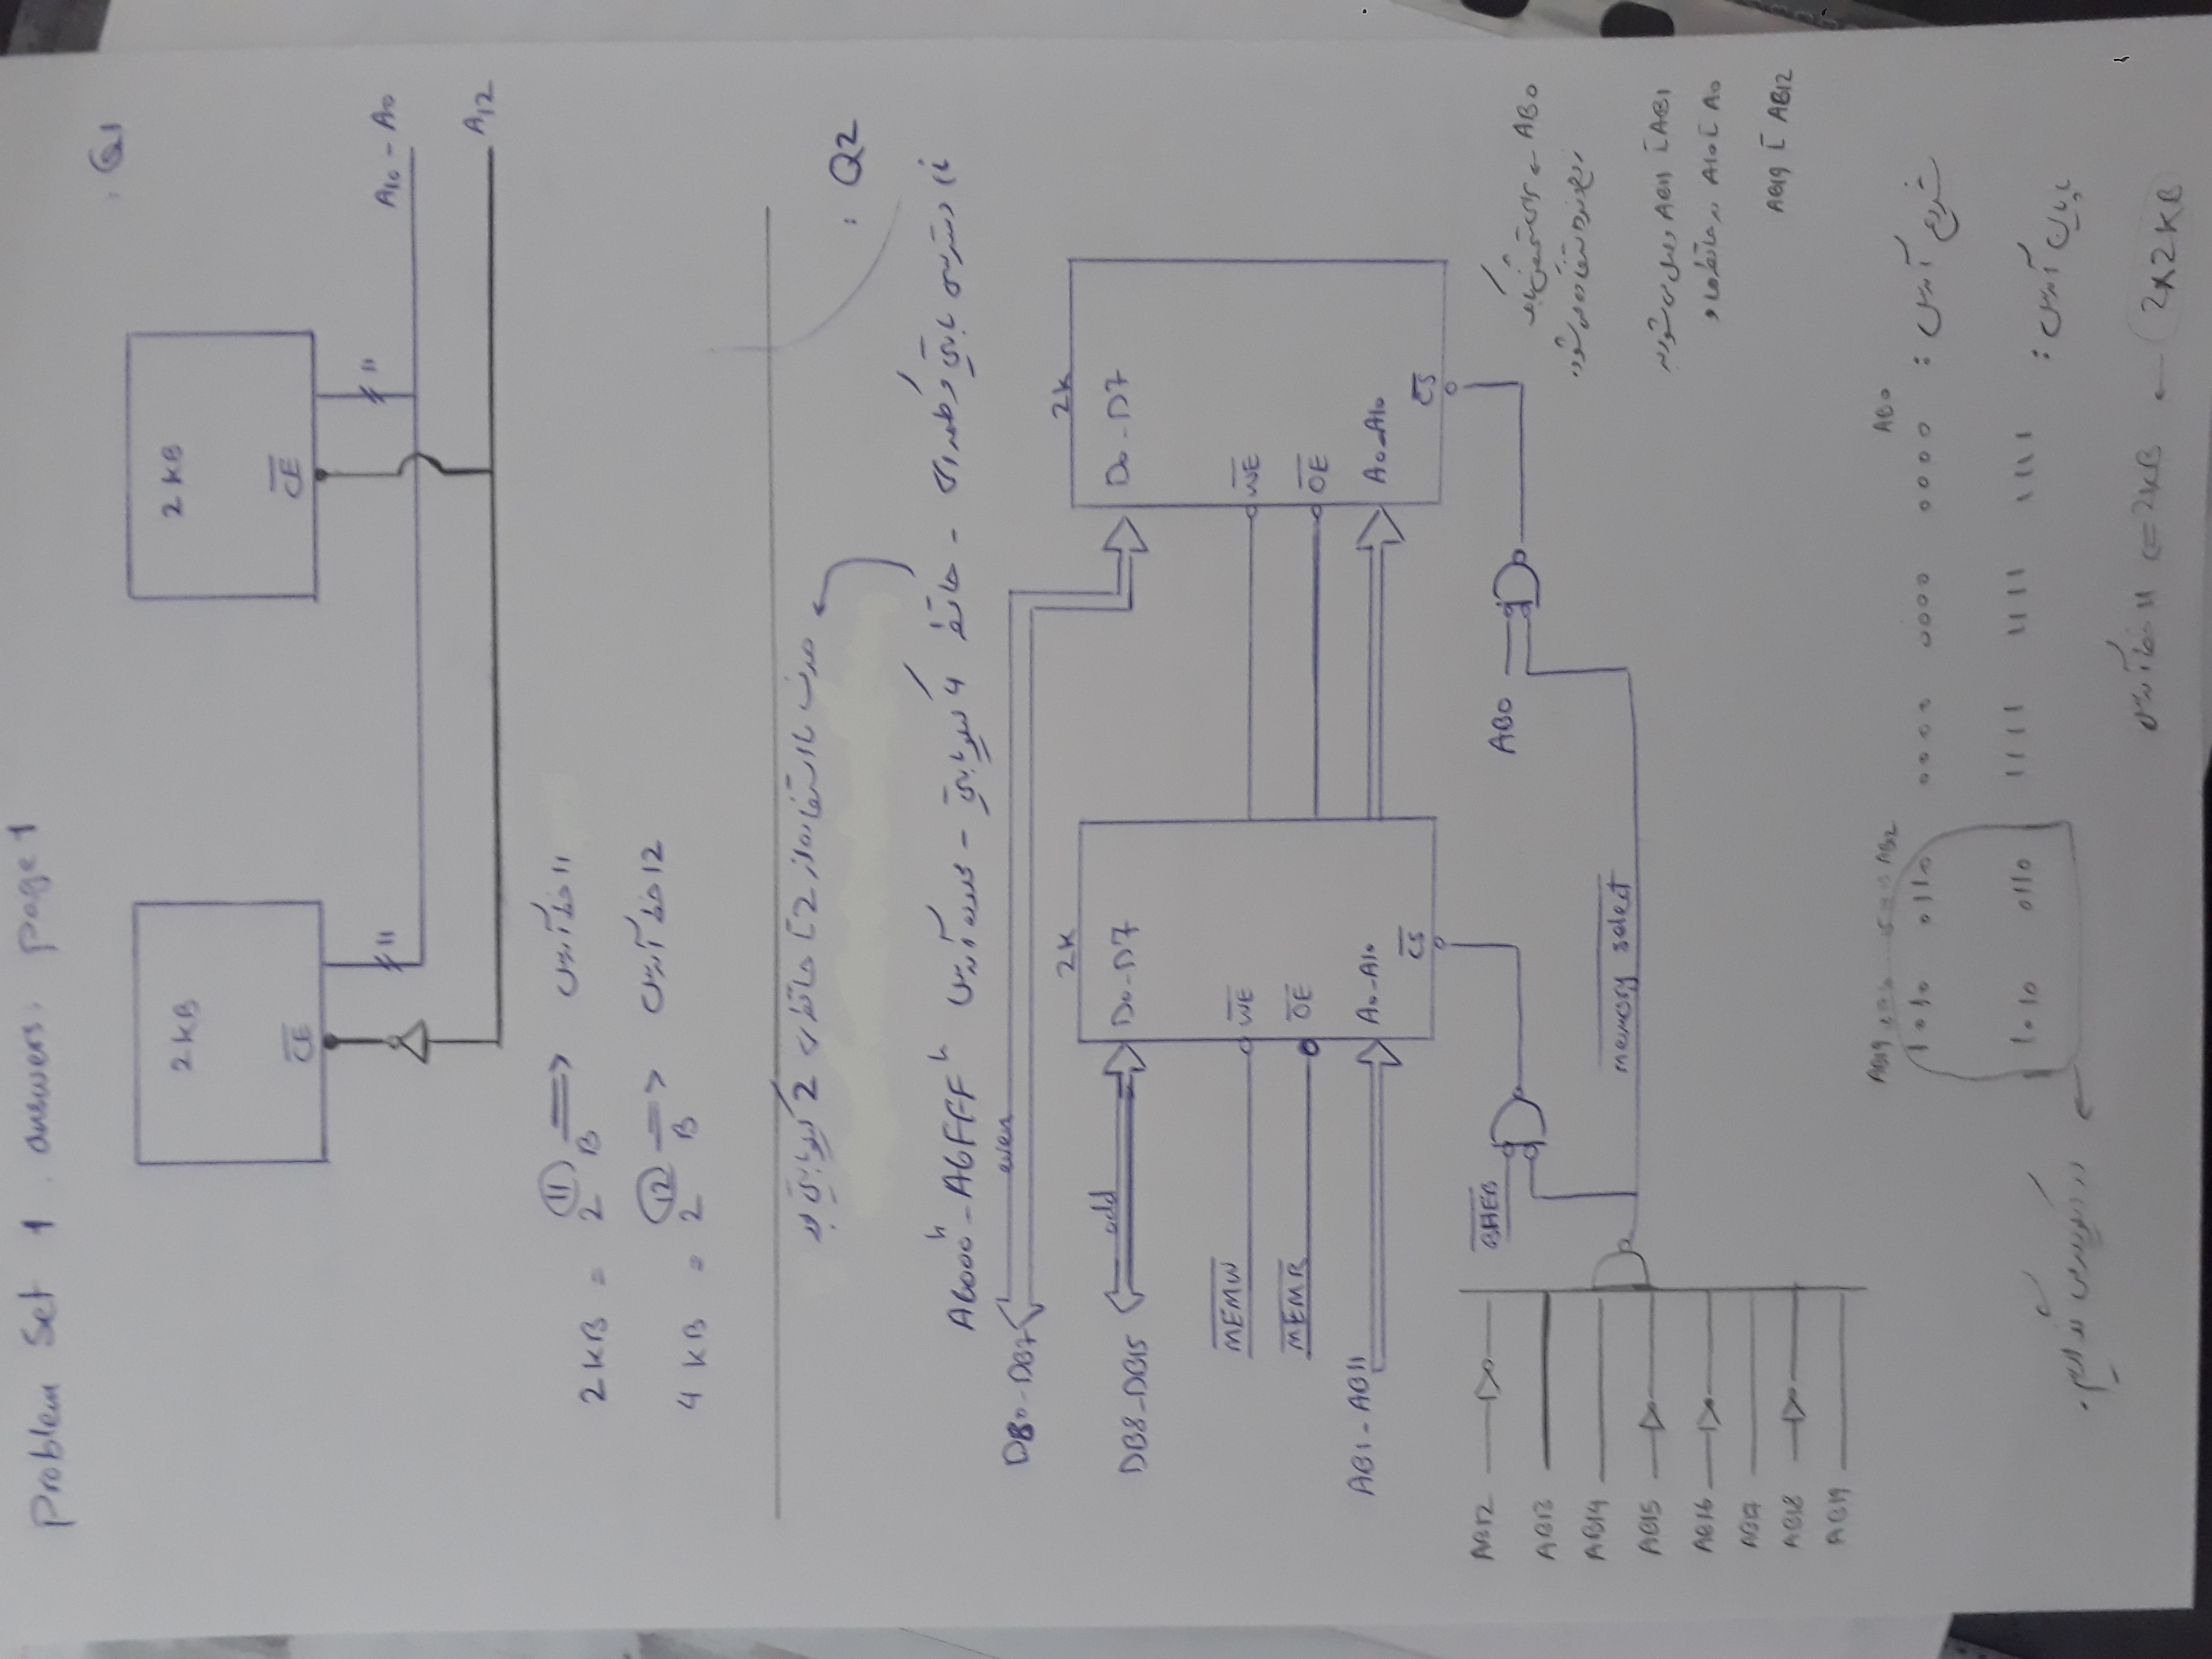 Problem Set 1 answers: page 1
Q1
2 KB
2 KB
CE
CE
11
11
A10 - A0
A12
2 KB = 2 11 B ⇒ 11 خط آدرس
4 KB = 2 12 B ⇒ 12 خط آدرس
با استفاده از 2 تا حافظه ی 2 کیلوبایتی
: Q2
دسترسی بایتی و کلمه ای - حافظه 4 کیلوبایتی - محدوده آدرس A6000h - A6FFFh
DB0-DB7
even
2K
2K
DB8-DB15
odd
D0-D7
D0-D7
MEMW
WE
WE
MEMR
OE
OE
AB1-AB11
A0-A10
A0-A10
CS
CS
AB12
BHEB
AB0
AB13
AB14
AB15
memory select
AB16
AB17
AB18
AB19
AB0 ← برای تشخیص بایت
زوج و فرد استفاده می شود.
AB1 تا AB11 وصل می شود به
A0 تا A10 در حافظه ها و
AB12 تا AB19
AB19 AB12 AB0
شروع آدرس : 1010 0110 0000 0000 0000
پایان آدرس : 1010 0110 1111 1111 1111
در دیکودر می گذاریم.
2X2KB ← 2KB ⇒ 11 خط آدرس